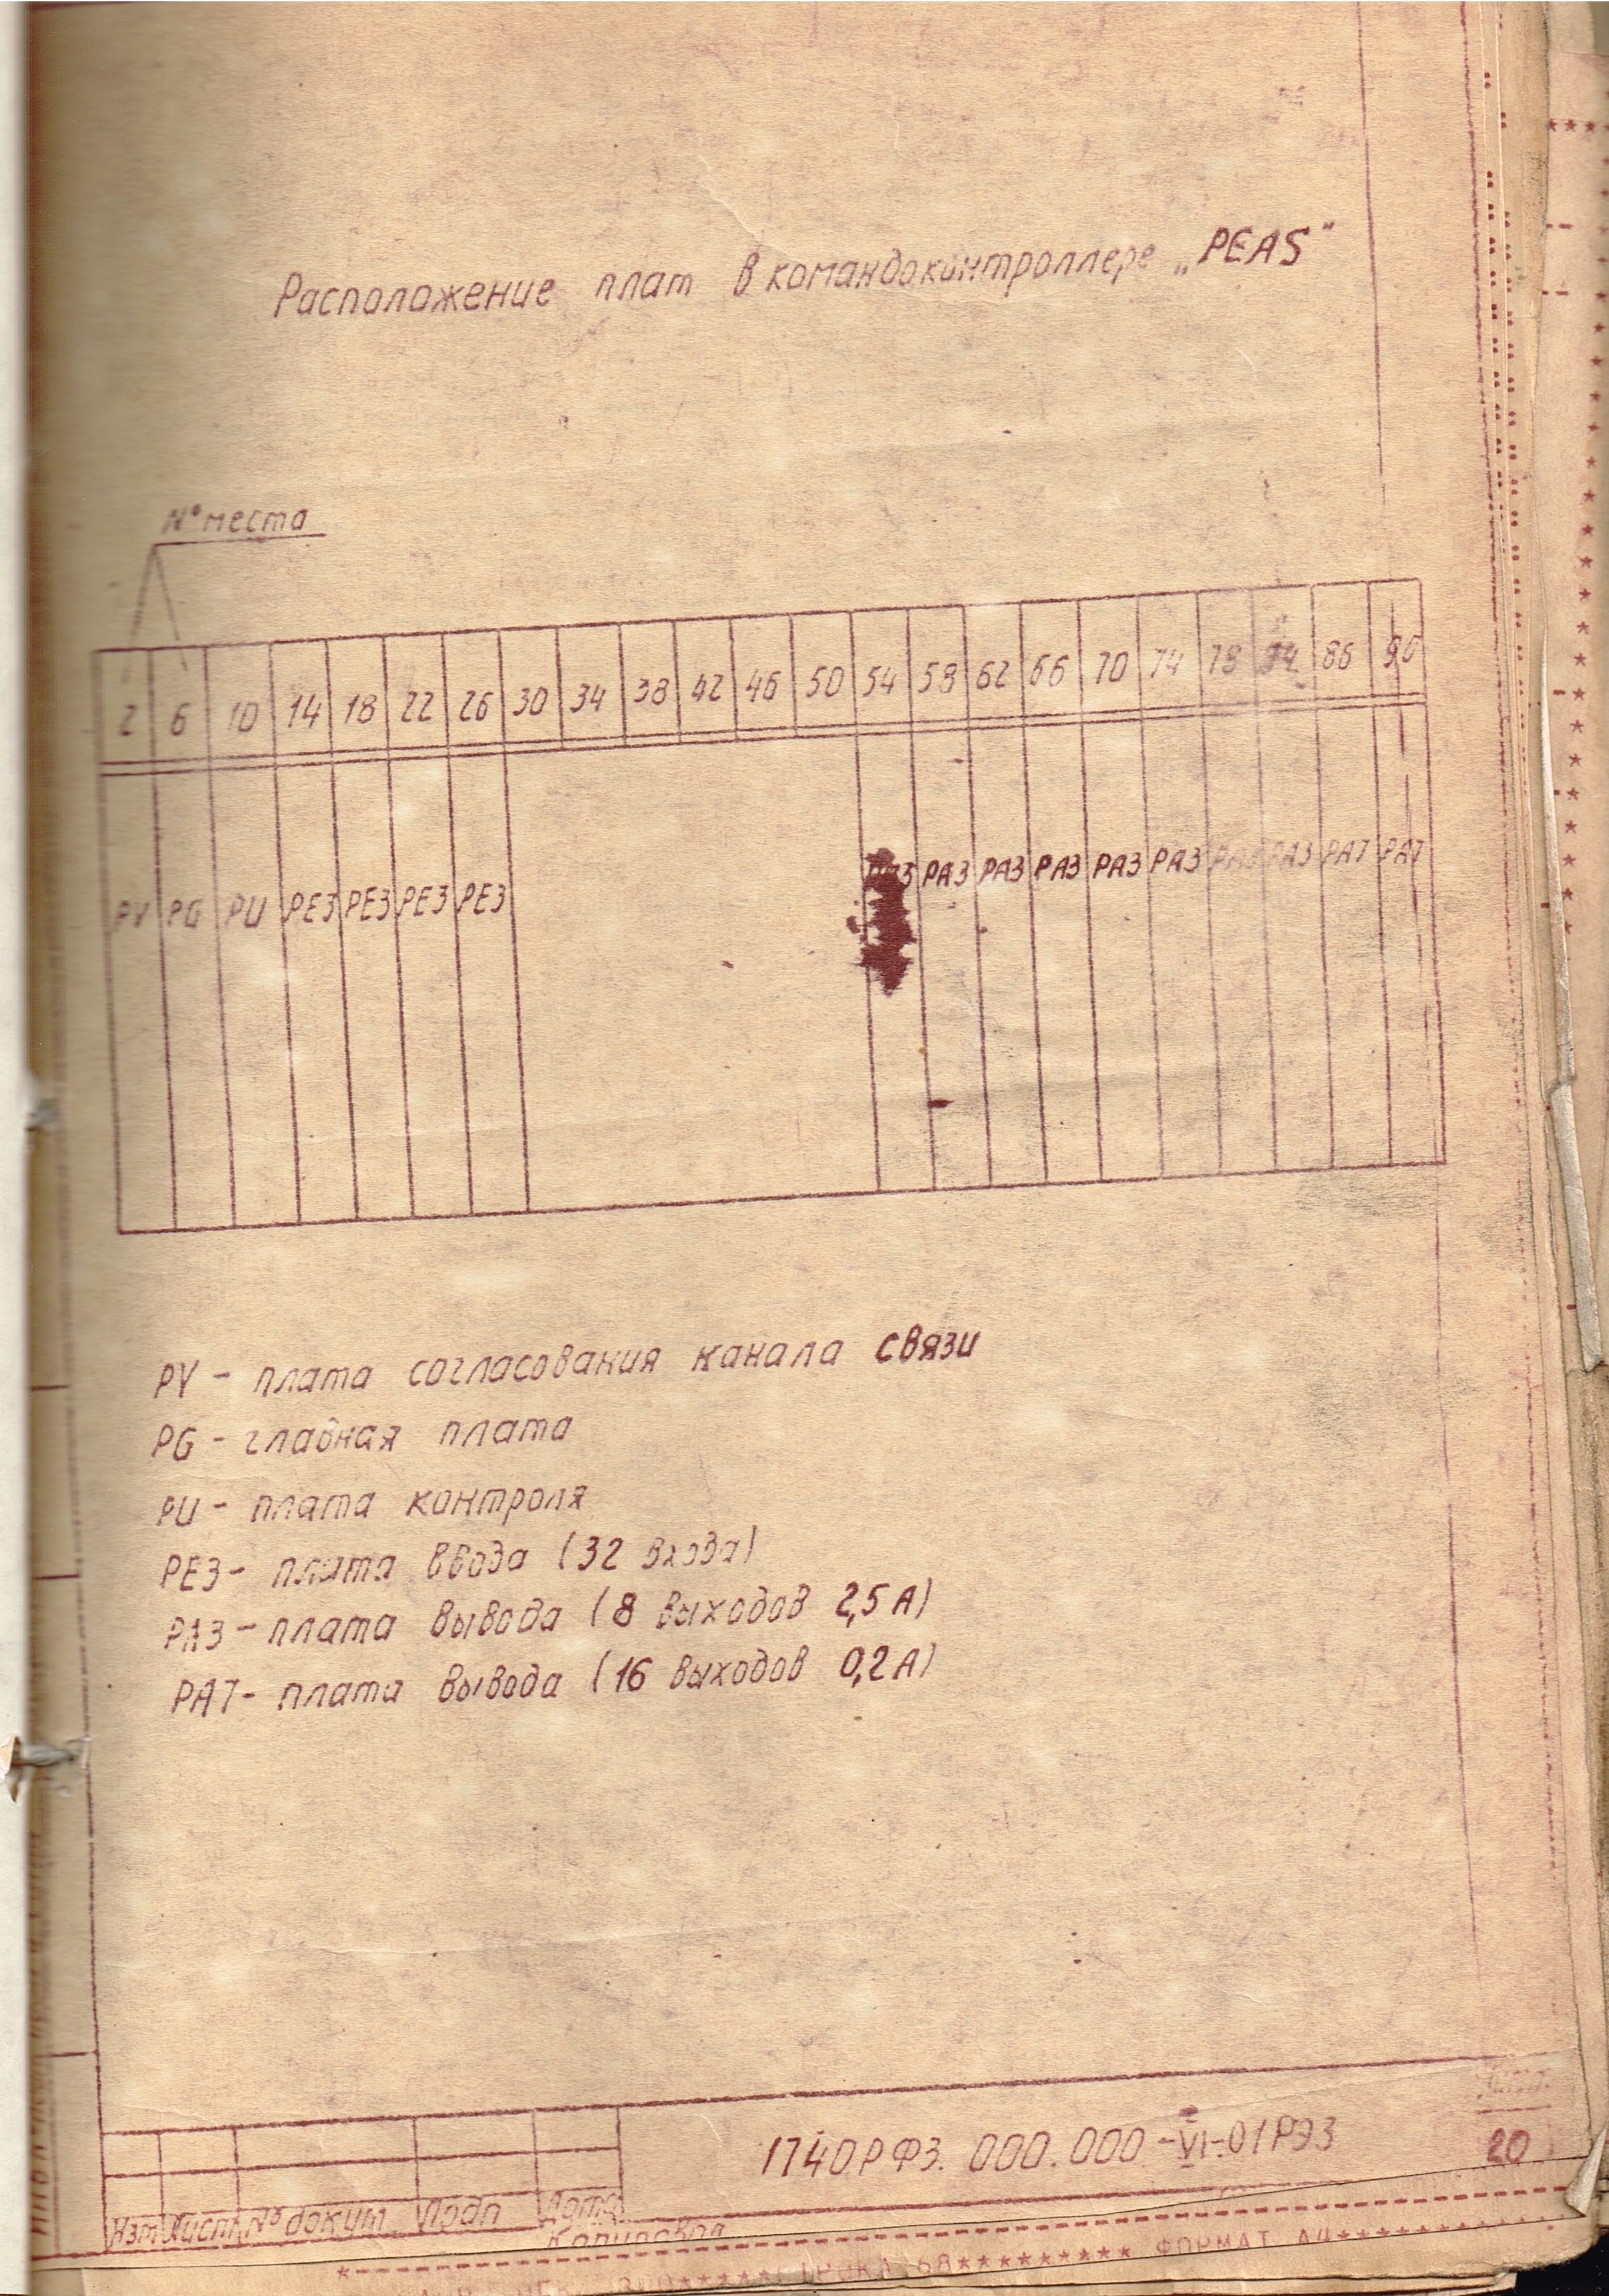 Расположение плат в командоконтроллере „PEAS"
N° места
2 6 10 14 18 22 26 30 34 38 42 46 50 54 58 62 66 70 74 78 86 90
PV PG PU PE3 PE3 PE3 PE3 PA3 PA3 PA3 PA3 PA3 PA3 PA3 PA3 PA7 PA7
PV - плата согласования канала связи
PG - главная плата
PU - плата контроля
PE3 - плата ввода (32 входа)
PA3 - плата вывода (8 выходов 2,5 А)
PA7 - плата вывода (16 выходов 0,2 А)
1740РФ3.000.000-VI-01РЭ3
Лист
20
Изм Лист № докум. Подп Дата
Копировал
ФОРМАТ А4